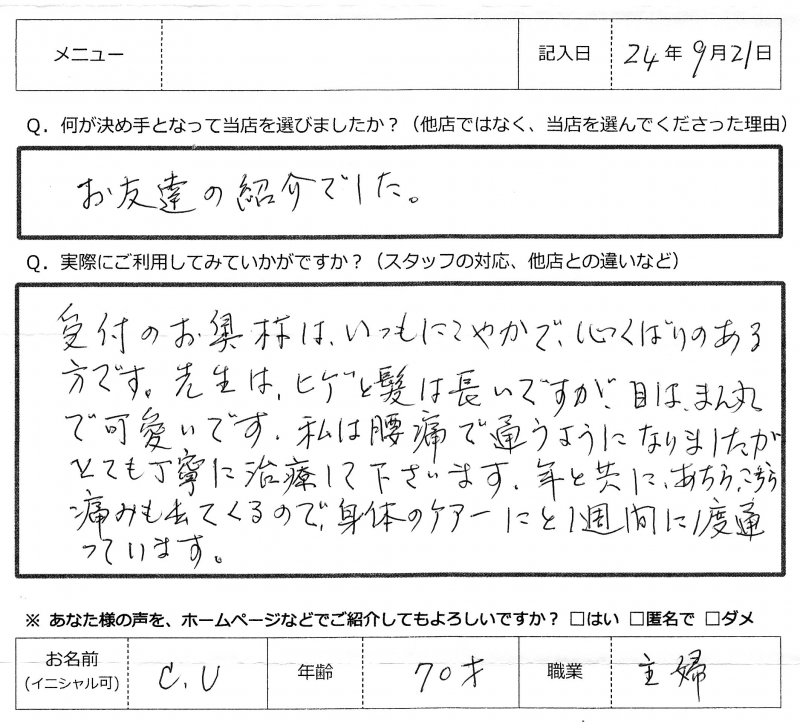 メニュー 記入日 24年9月21日
Q．何が決め手となって当店を選びましたか？（他店ではなく、当店を選んでくださった理由）
お友達の紹介でした。
Q．実際にご利用してみていかがですか？（スタッフの対応、他店との違いなど）
受付のお奥様は、いつもにこやかで、心くばりのある
方です。先生は、ヒゲと髪は長いですが、目は、まん丸
で可愛いです。私は腰痛で通うようになりましたが
とても丁寧に治療して下さいます。年と共に、あちら、こちら
痛みも出てくるので、身体のケアーにと1週間に1度通
っています。
※ あなた様の声を、ホームページなどでご紹介してもよろしいですか？ □はい □匿名で □ダメ
お名前 (イニシャル可) C.U 年齢 70才 職業 主婦